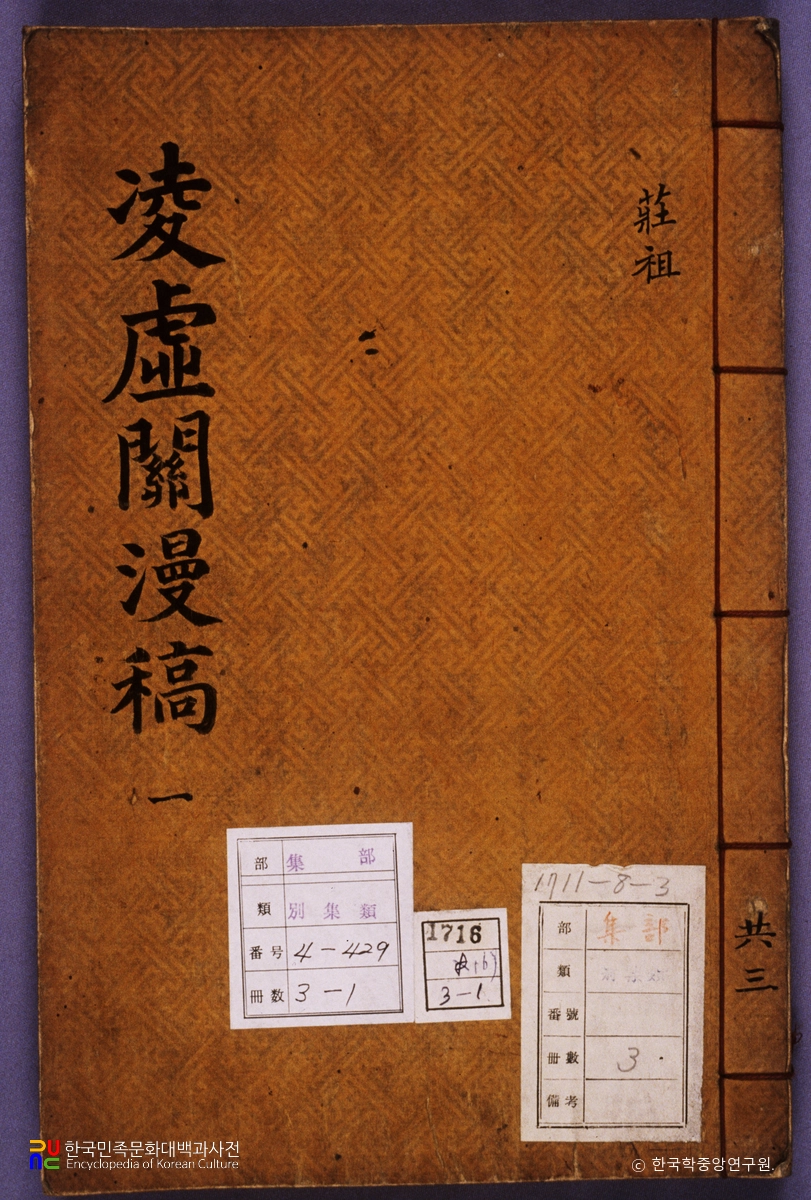 莊祖
凌虛關漫稿 一
共三
部 集部
類 別集類
番号 4-429
冊数 3-1
1716
3-1
1711-8-3
部 集部
類
番號
冊數 3
備考
한국민족문화대백과사전
Encyclopedia of Korean Culture
© 한국학중앙연구원.